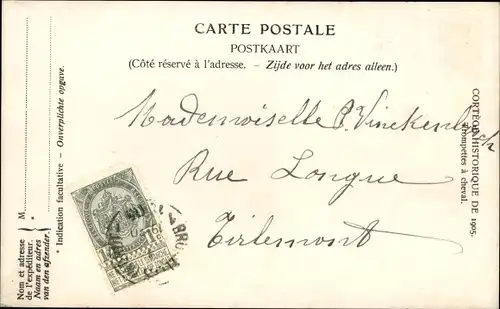 CARTE POSTALE
POSTKAART
(Côté réservé à l'adresse. – Zijde voor het adres alleen.)
Mademoiselle P. Vinckenbosch
Rue Longue
Tirlemont
CORTÈGE HISTORIQUE DE 1905.
Trompettes à cheval.
M
* Indication facultative – Onverplichte opgave.
Nom et adresse
de l'expéditeur. *
Naam en adres
van den afzender.